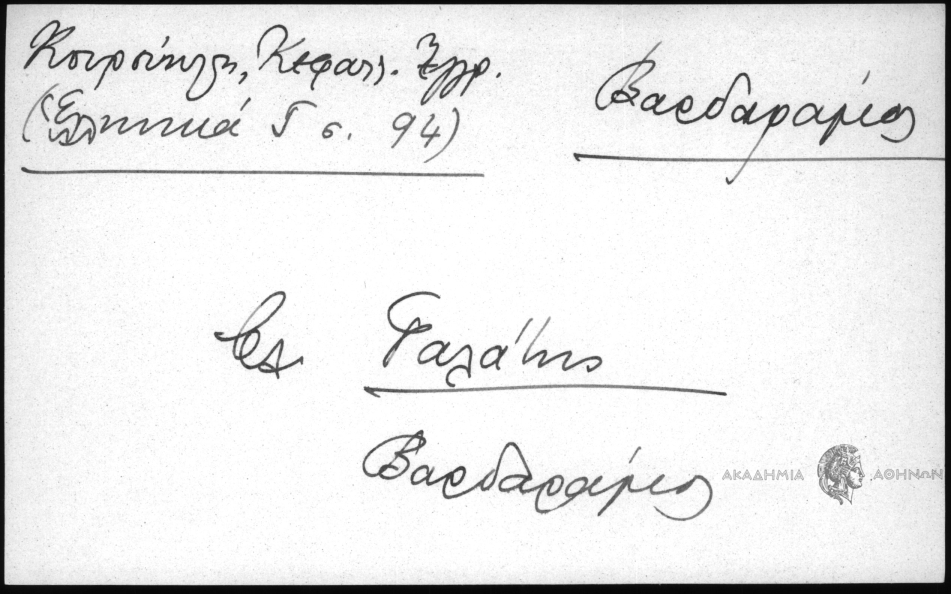 Κουρούκλη, Κεφαλλ. Έγγρ.
(Ἑλληνικά 5 σ. 94)
Βαρδαραμος
βλ Γαλάτης
Βαρδαραμος
ΑΚΑΔΗΜΙΑ ΑΘΗΝΩΝ